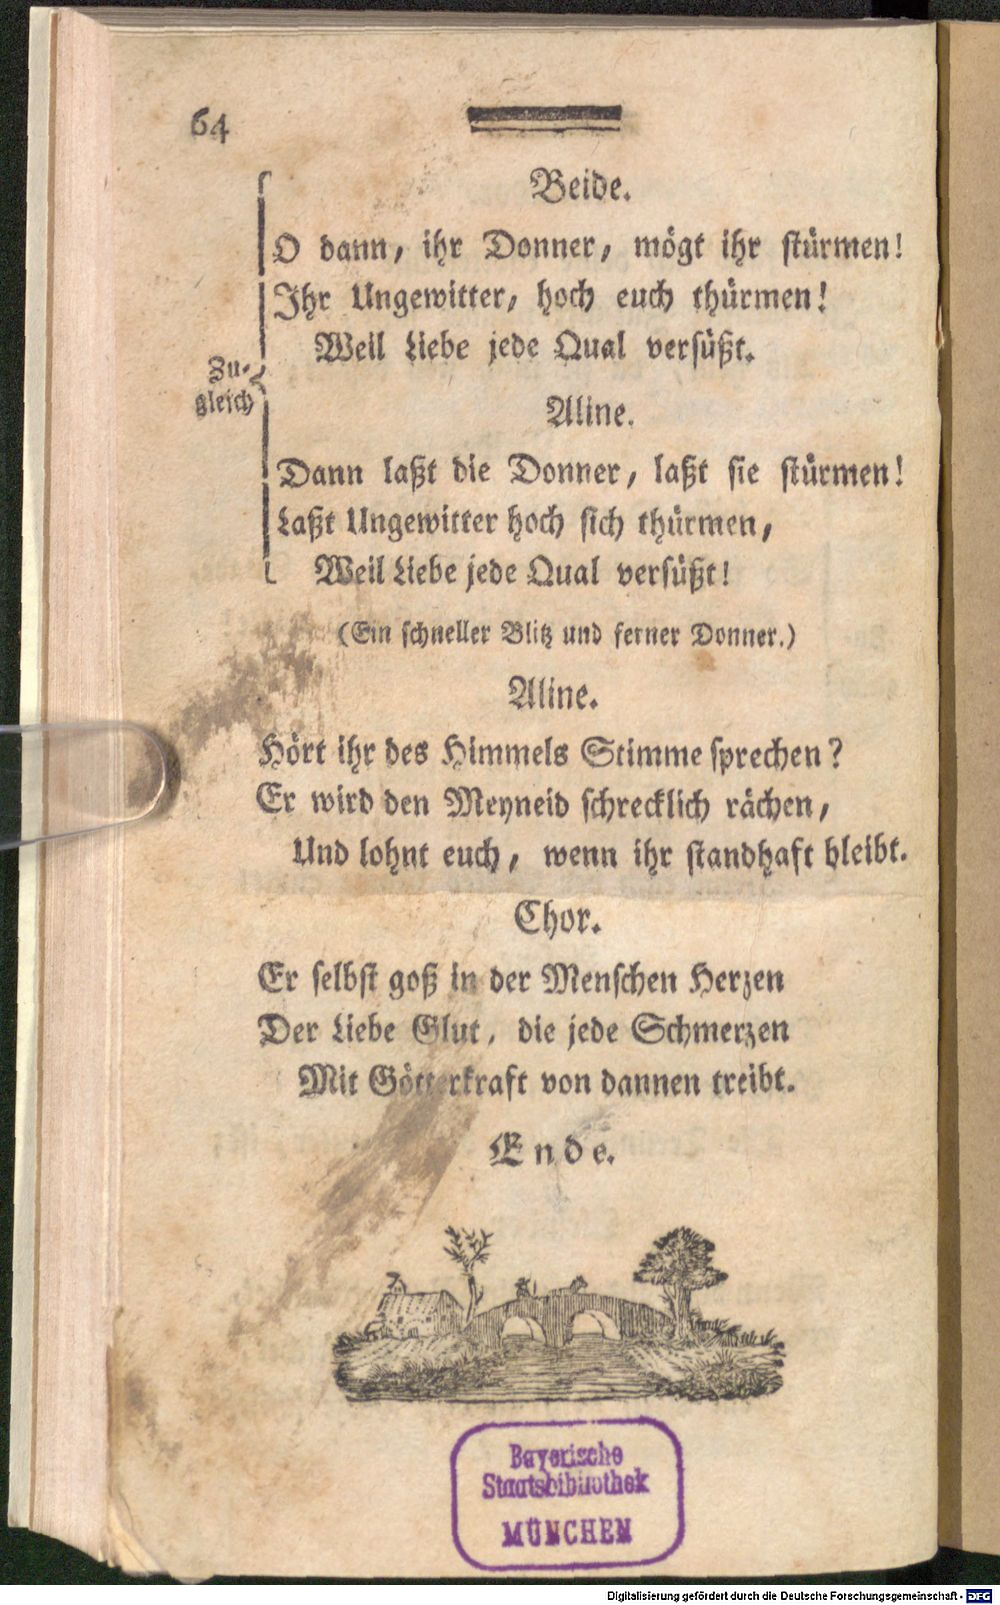 64
Beide.
O dann, ihr Donner, mögt ihr stürmen!
Ihr Ungewitter, hoch euch thürmen!
Weil Liebe jede Qual versüßt.
Zu-
gleich
Aline.
Dann laßt die Donner, laßt sie stürmen!
Laßt Ungewitter hoch sich thürmen,
Weil Liebe jede Qual versüßt!
(Ein schneller Blitz und ferner Donner.)
Aline.
Hört ihr des Himmels Stimme sprechen?
Er wird den Meyneid schrecklich rächen,
Und lohnt euch, wenn ihr standhaft bleibt.
Chor.
Er selbst goß in der Menschen Herzen
Der Liebe Glut, die jede Schmerzen
Mit Götterkraft von dannen treibt.
Ende.
Bayerische
Staatsbibliothek
MÜNCHEN
Digitalisierung gefördert durch die Deutsche Forschungsgemeinschaft - DFG